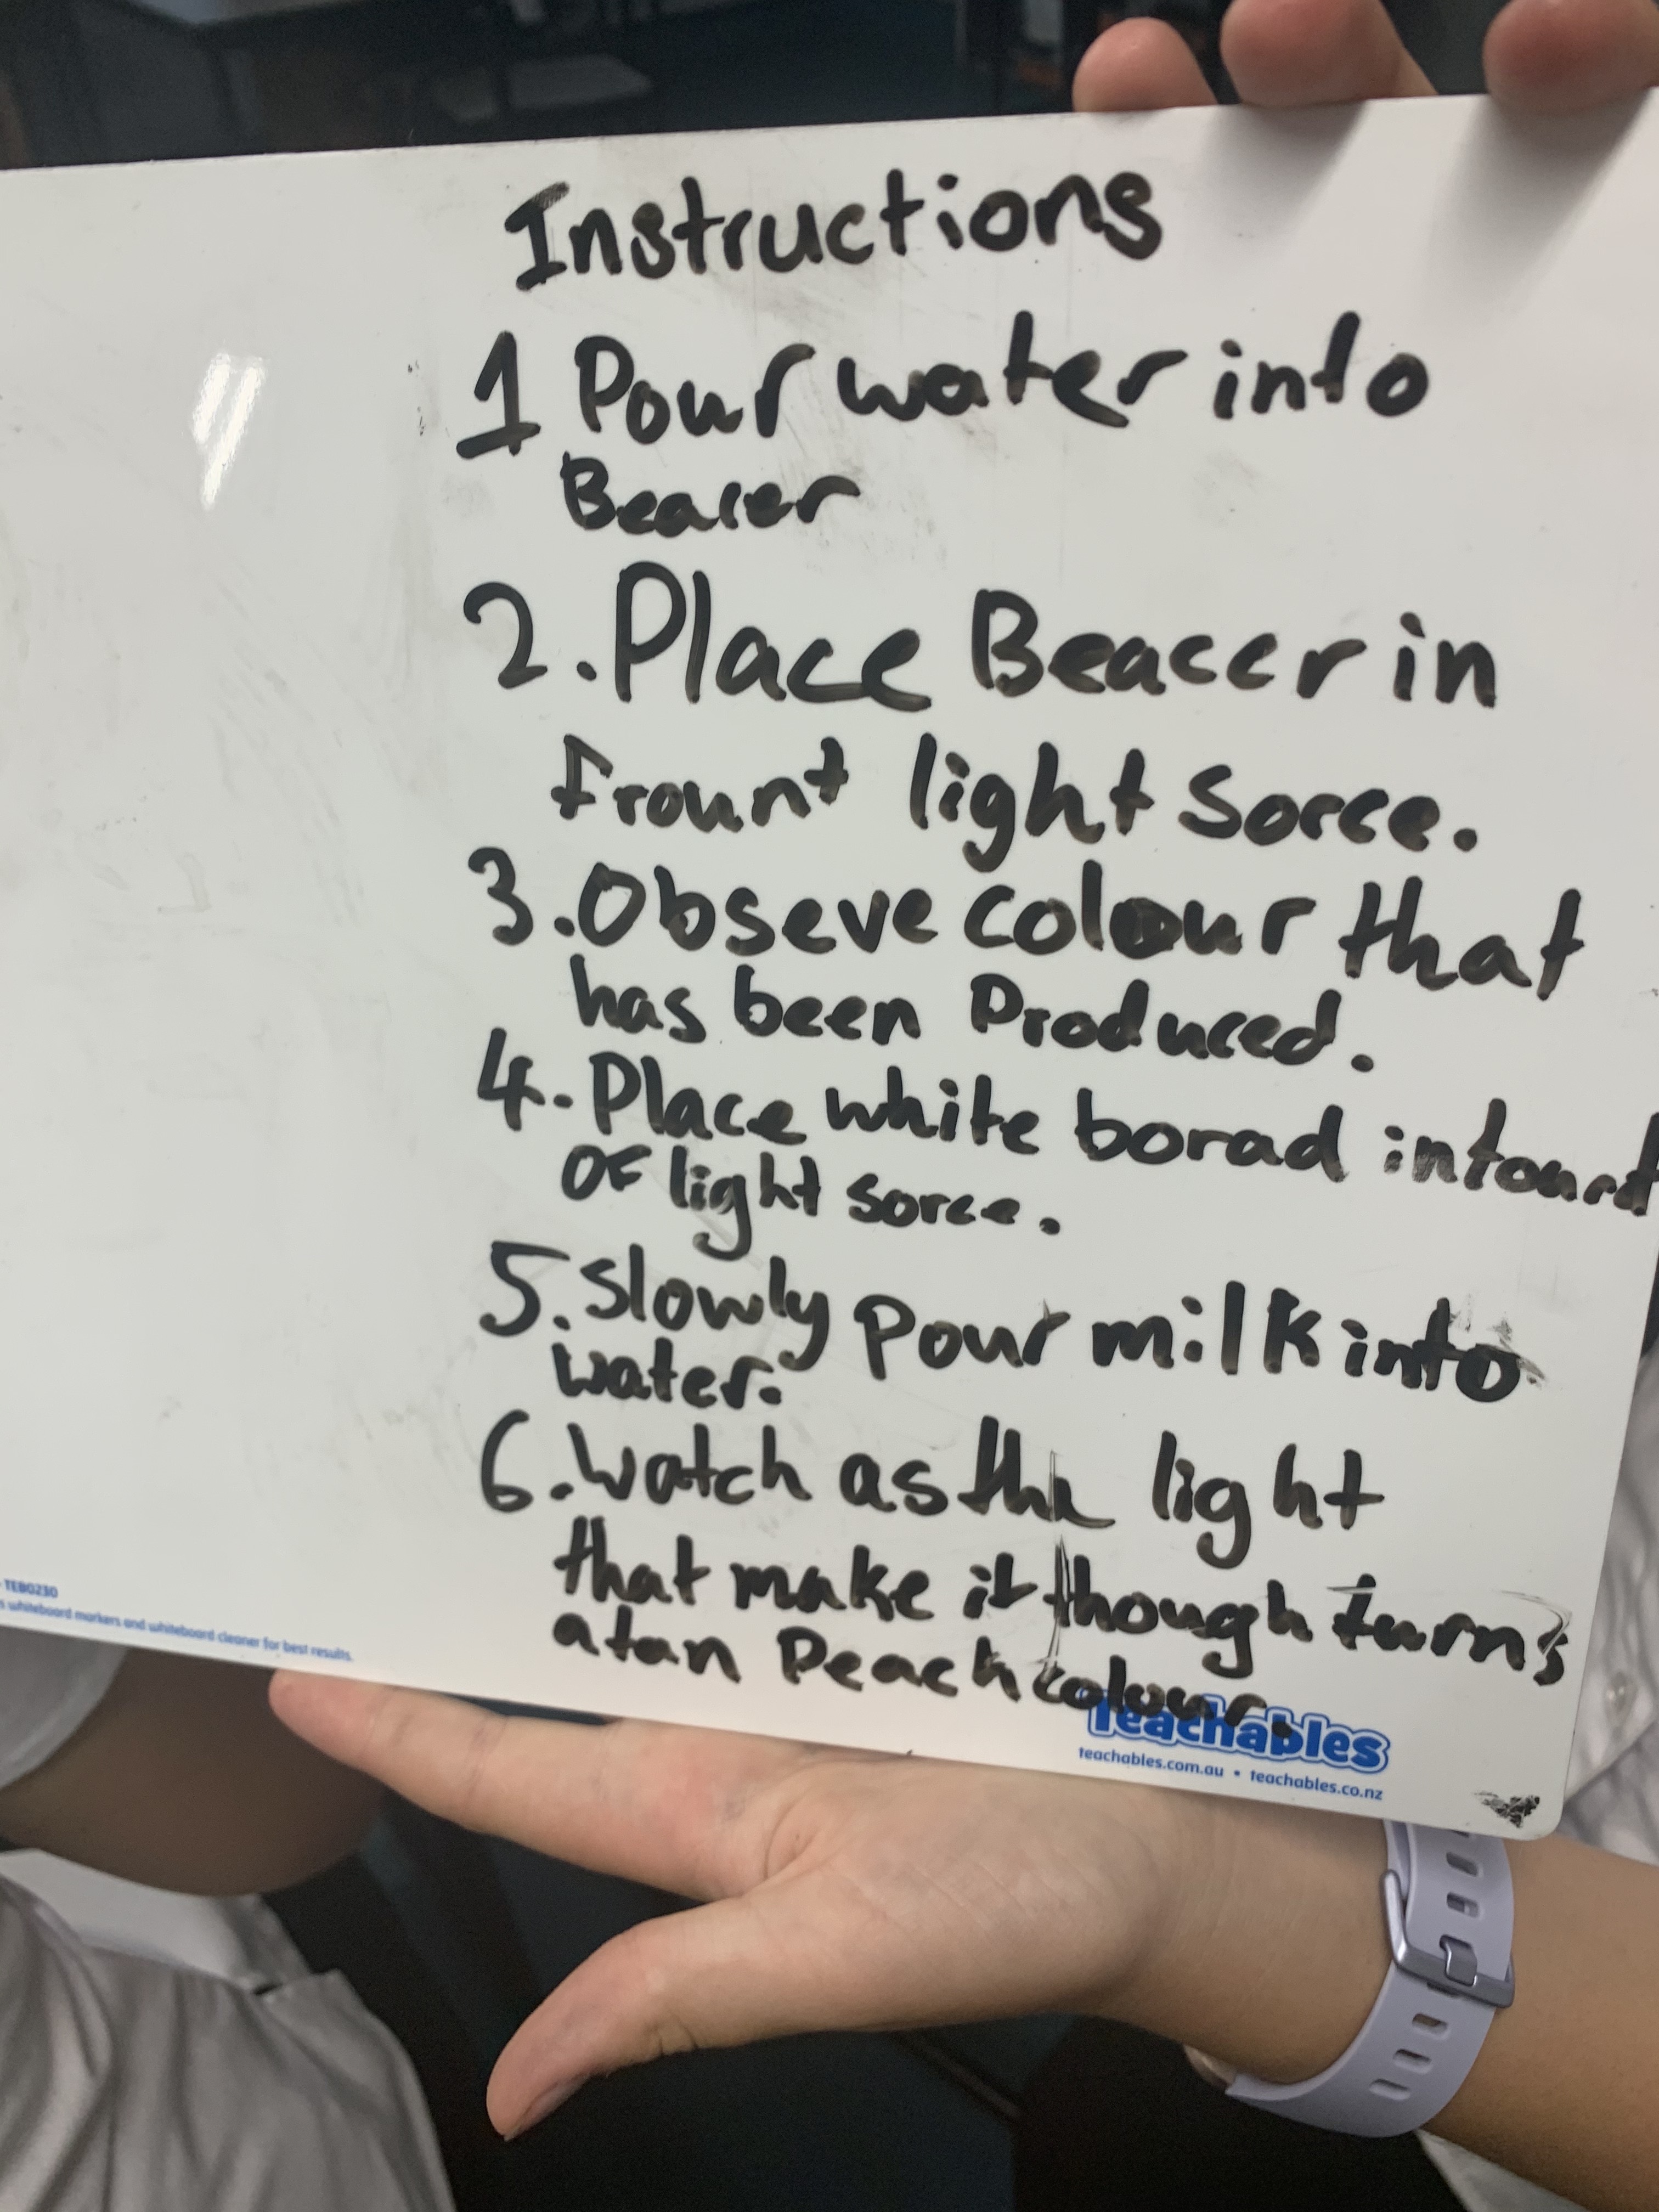 Instructions
1 Pour water into
Beacer
2. Place Beacer in
frount light Sorce.
3. Obseve colour that
has been Produced.
4. Place white borad
OF light sorce.
5. Slowly Pour milk into
water.
6. Watch as the light
that make it though turns
a tan Peach colour.
TEB0230
whiteboard markers and whiteboard cleaner for best results.
Teachables
teachables.com.au • teachables.co.nz